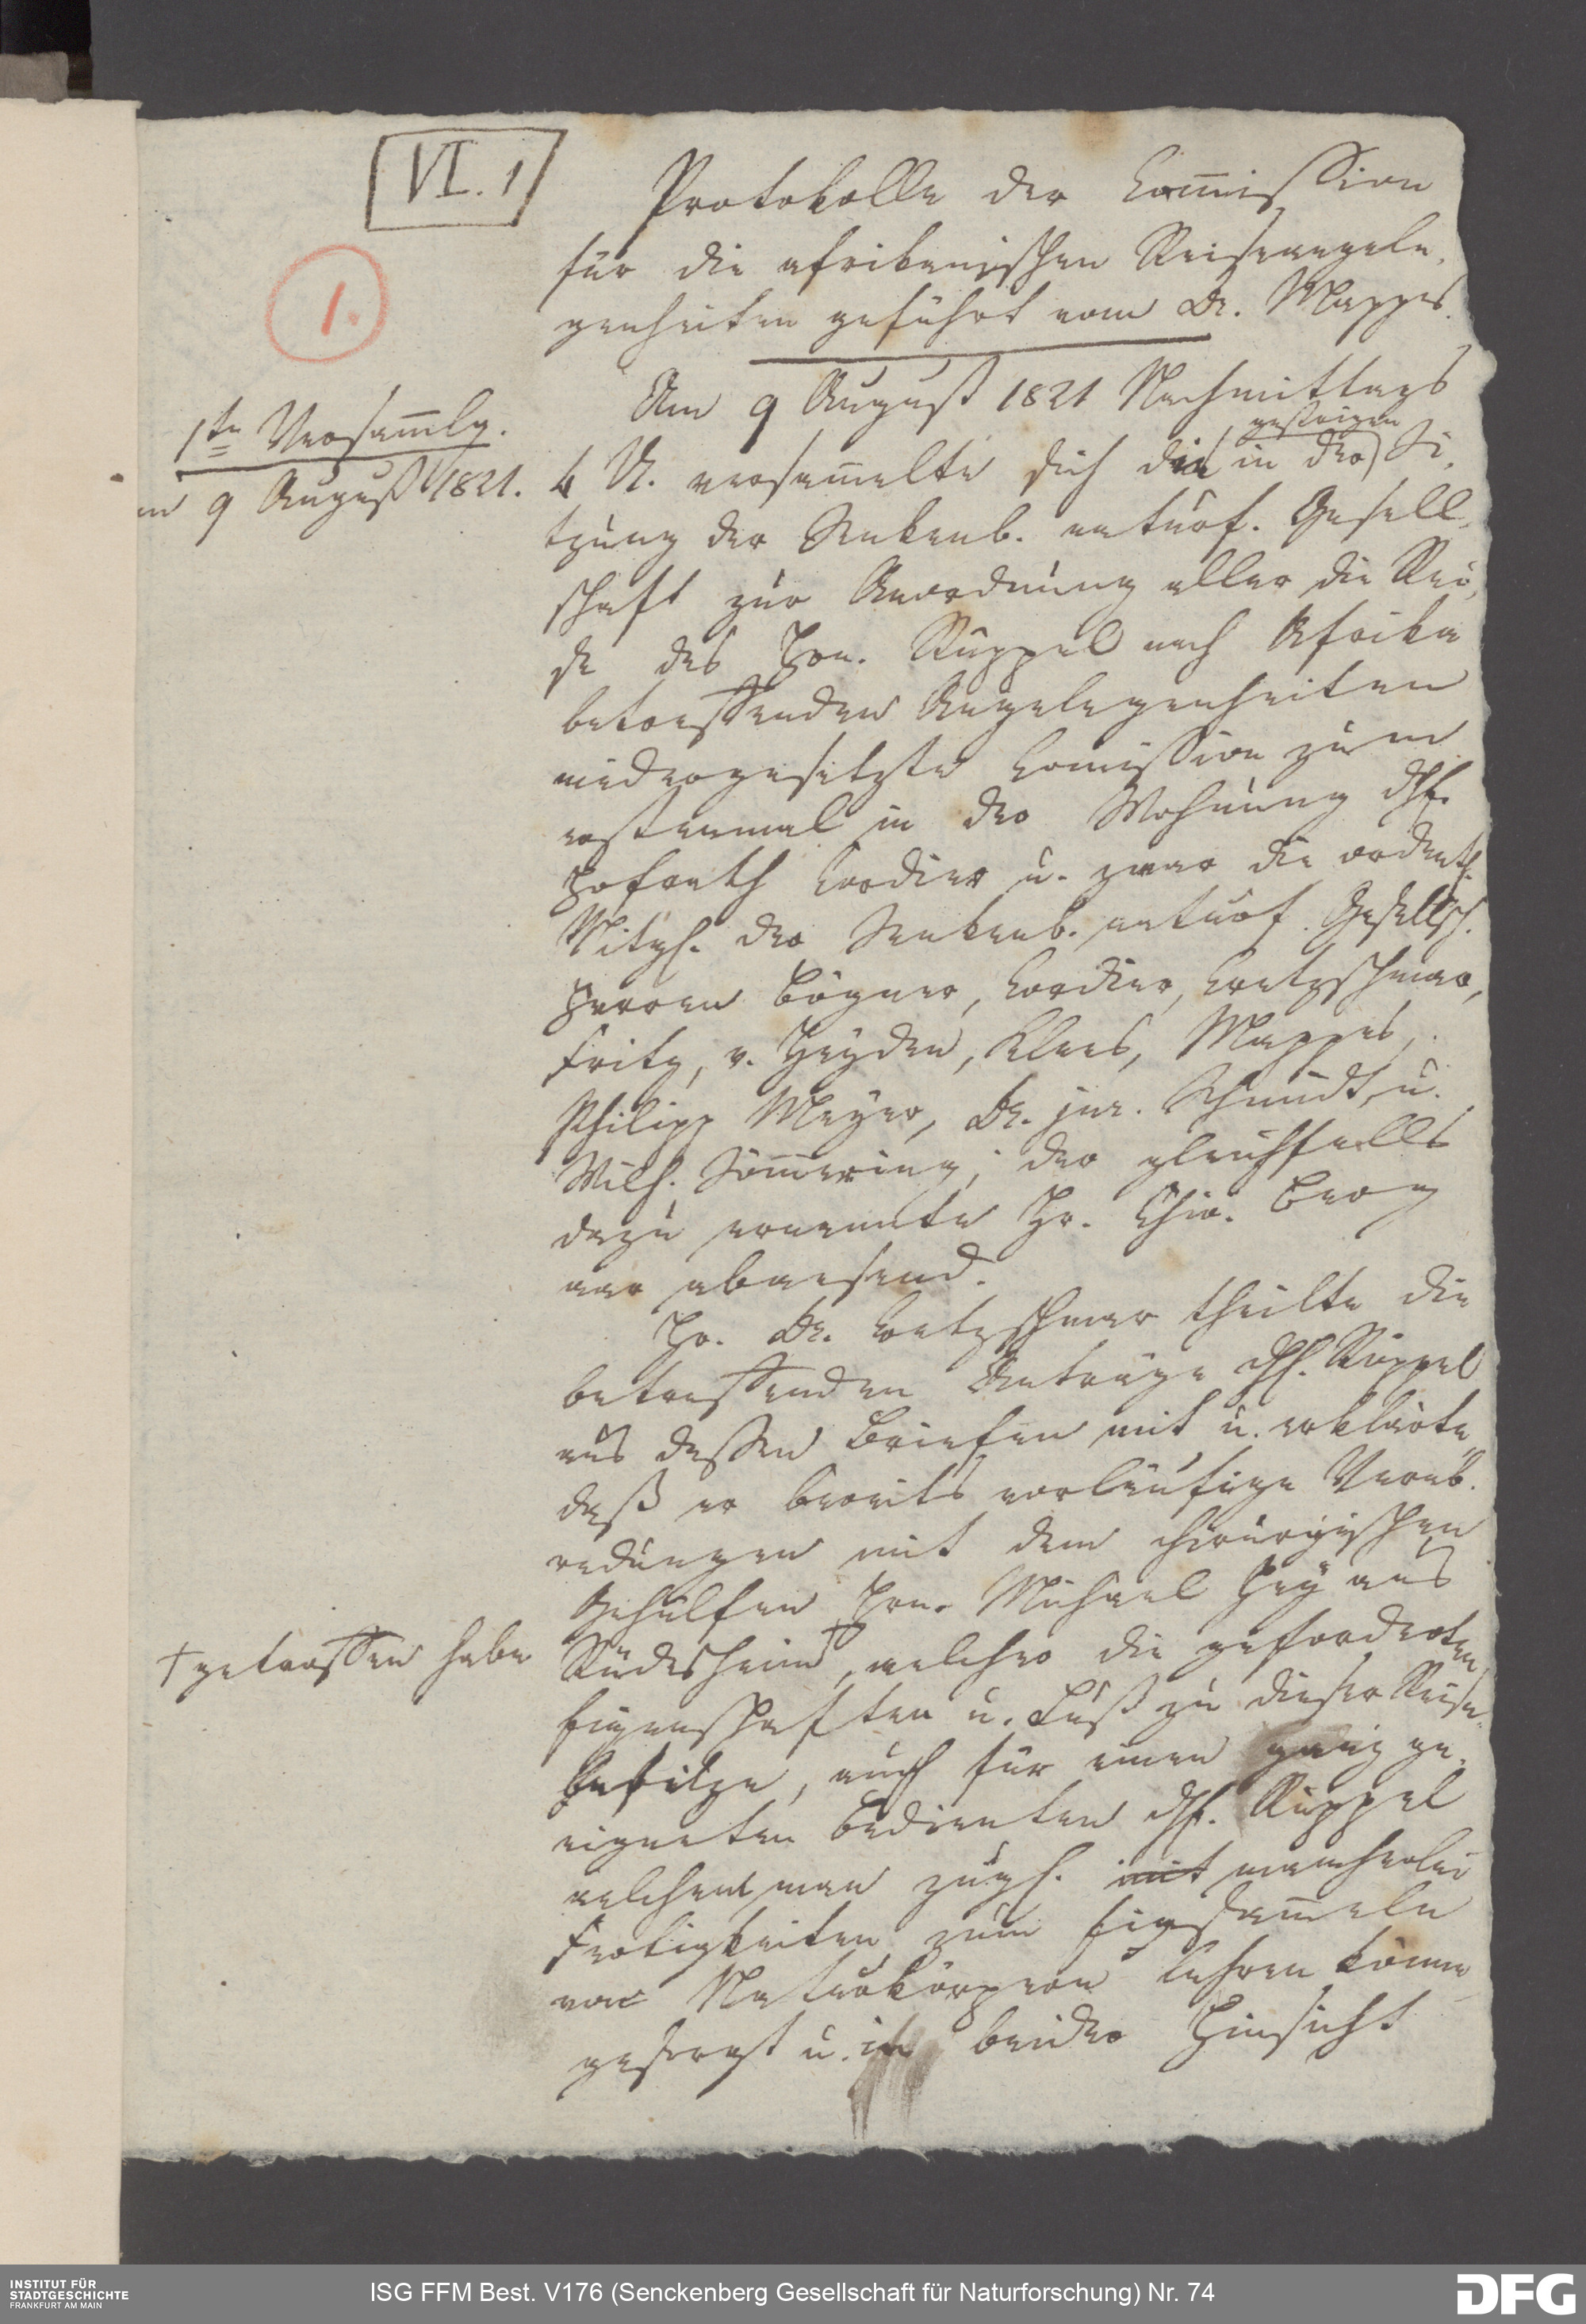 VI. 1
1.
Protokolle der Com̅ission
für die afrikanischen Reiseangele-
genheiten geführt vom Dr. Mappes.
1te Versam̅lg.
am 9 August 1821.
Am 9 August 1821 Nachmittags
gestrigen
4 U. versam̅elte sich die in der Si-
tzung der Senkenb. naturf. Gesell-
schaft zur Anordnung aller die Rei-
se des Hrn. Rüppel nach Afrika
betreffenden Angelegenheiten
niedergesetzte Com̅ission zum
erstenmal in der Wohnung dH.
Hofrath Cordier u. zwar die ordentl.
Mitgl. der Senkenb. naturf. Gesellsch.
Herren Bögner, Cordier, Cretzschmar,
Fritz, v. Heyden, Klees, Mappes,
Philipp Meyer, Dr. jur. Schmidt, u.
Wilh. Söm̅ering; der gleichfalls
dazu ernannte Hr. Chir. Berg
war abwesend.
Hr. Dr. Cretzschmar theilte die
betreffenden Anträge dH. Rüppel
aus dessen Briefen mit u. erklärte,
daß er bereits vorläufige Verab-
redungen mit dem chirurgischen
Gehülfen Hrn. Michael Hey aus
† getroffen habe
Rüdesheim †, welcher die geforderten
Eigenschaften u. Lust zu dieser Reise
besitze, auch für einen ganz ge-
eigneten Bedienten dH. Rüppel
welchem man zugl. mit mancherlei
Fertigkeiten zum Einsam̅eln
von Naturkörpern lehren könne
gesorgt u. in beider Hinsicht
INSTITUT FÜR
STADTGESCHICHTE
FRANKFURT AM MAIN
ISG FFM Best. V176 (Senckenberg Gesellschaft für Naturforschung) Nr. 74
DFG